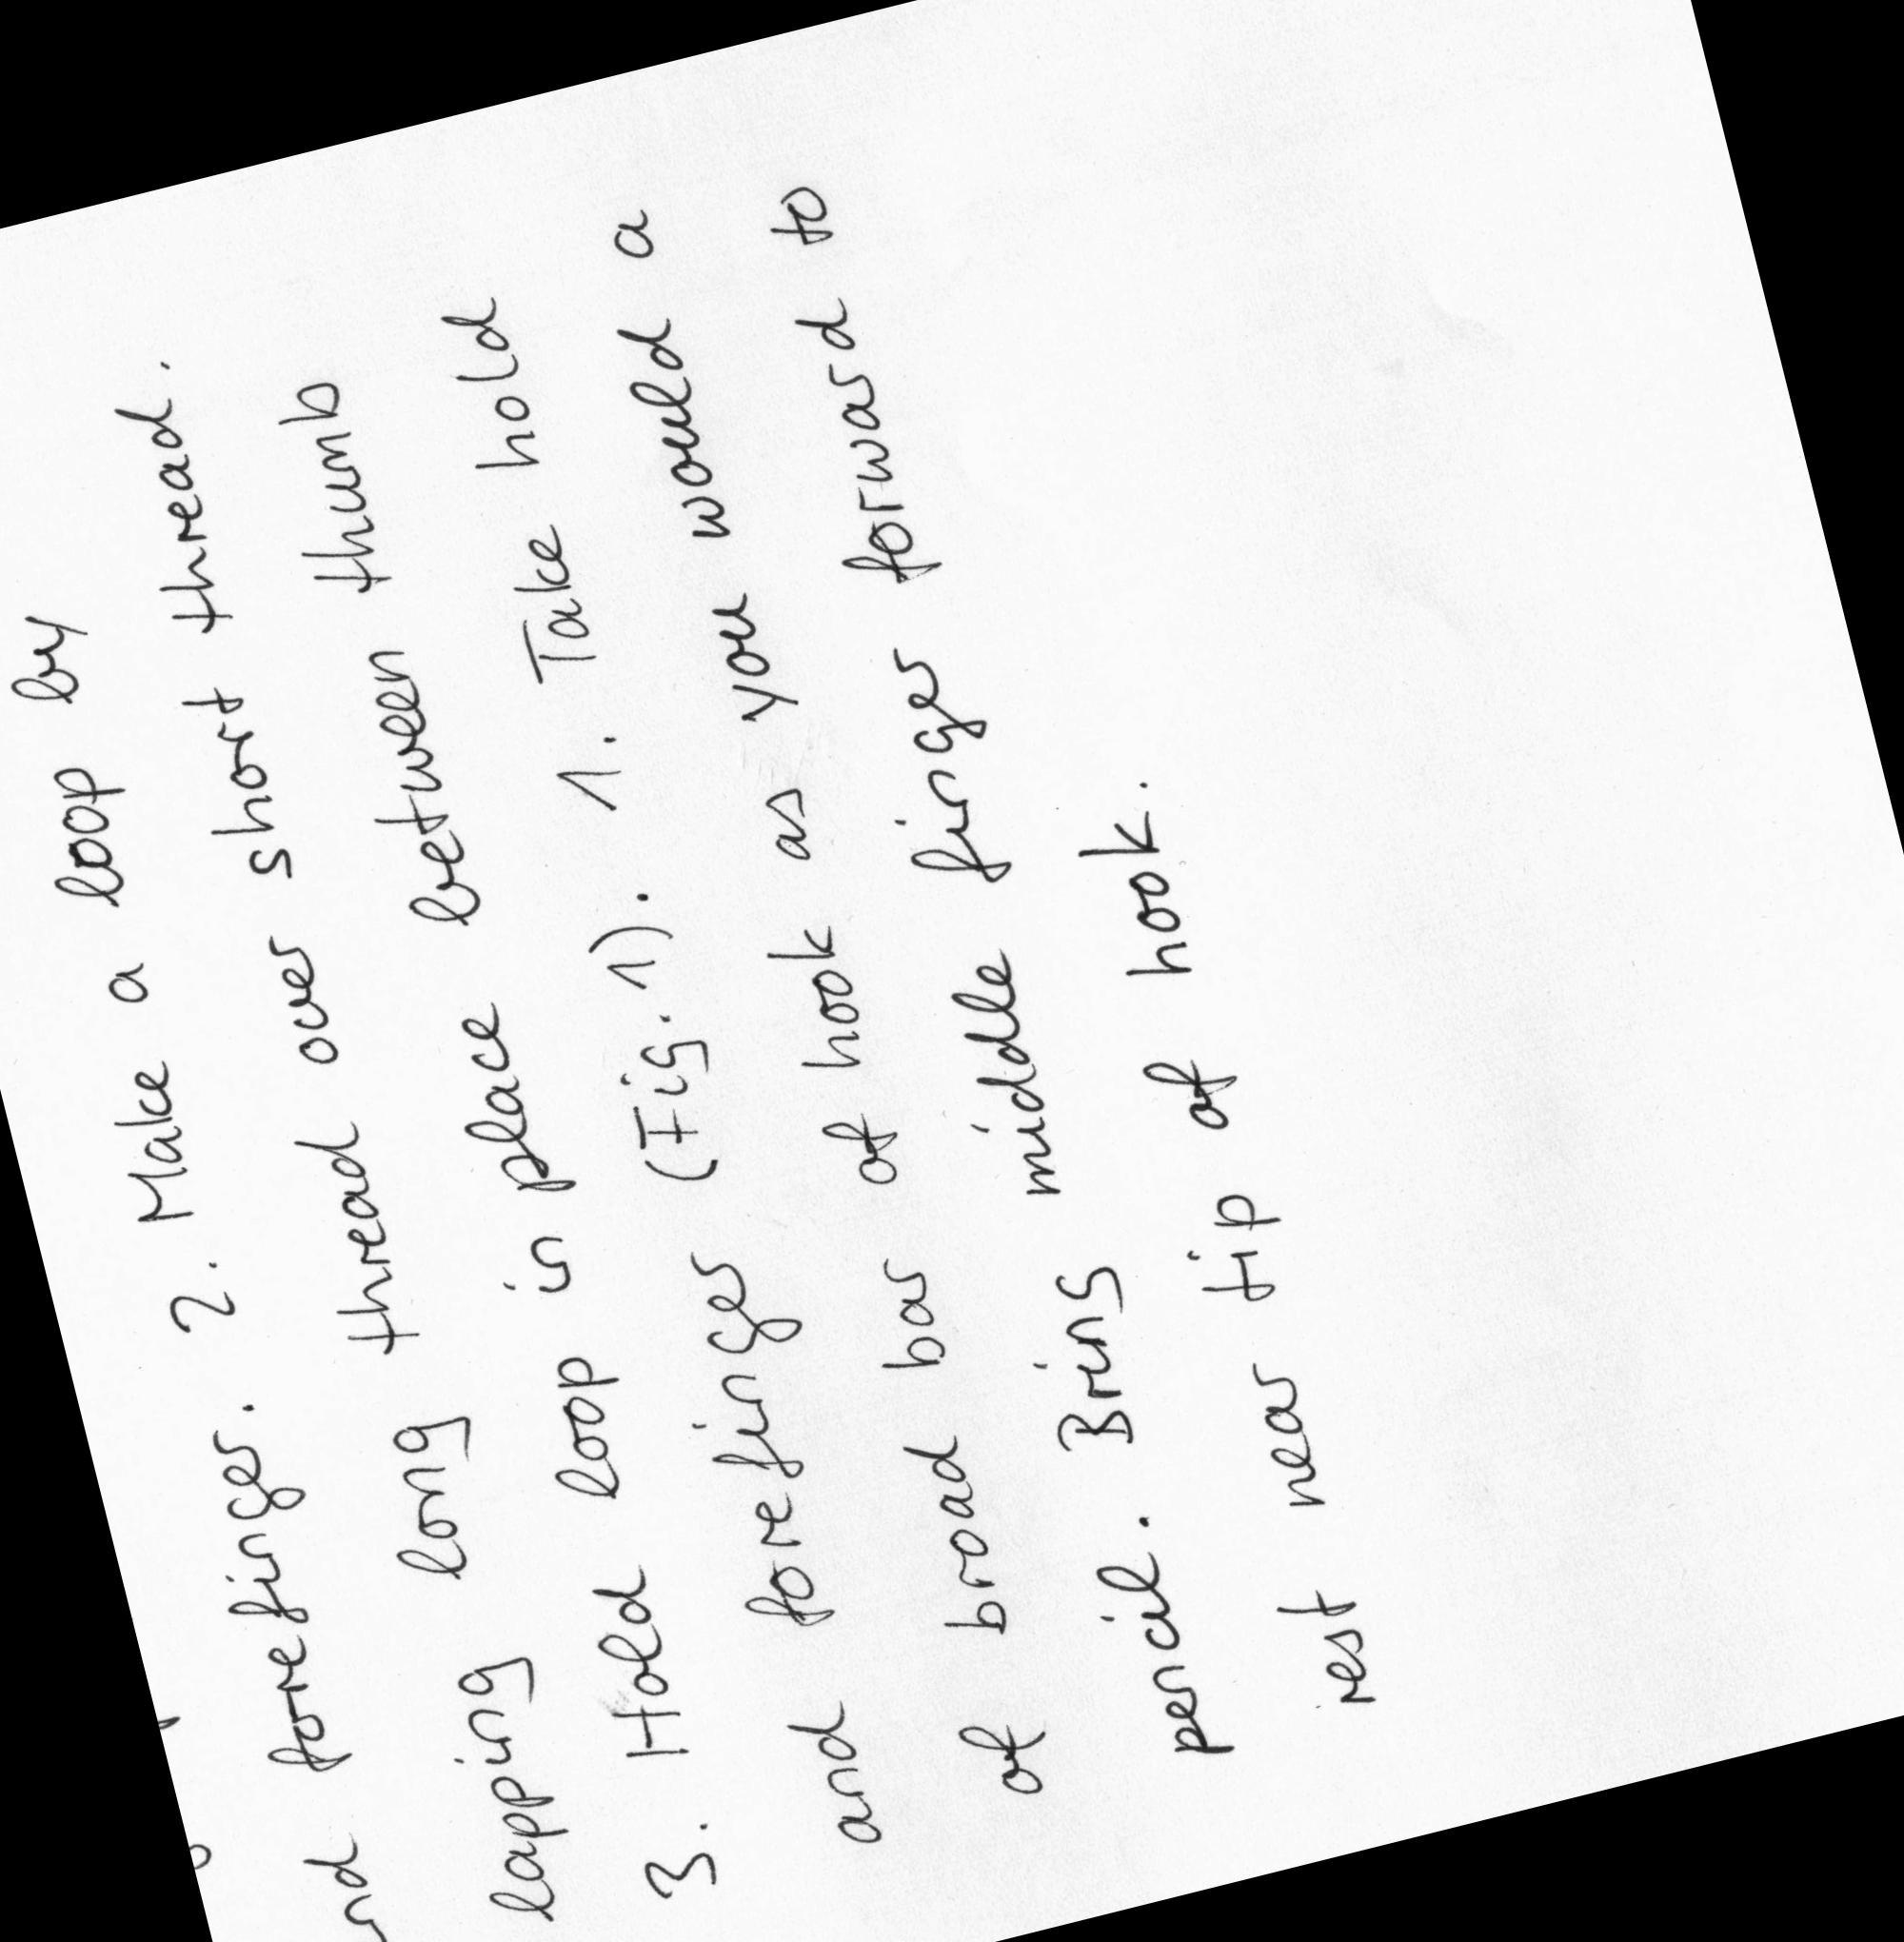 forefinger. 2. Make a loop by
lapping long thread over short thread.
3. Hold loop in place between thumb
and forefinger (Fig. 1). 1. Take hold
of broad bar of hook as you would a
pencil. Bring middle finger forward to
rest near tip of hook.